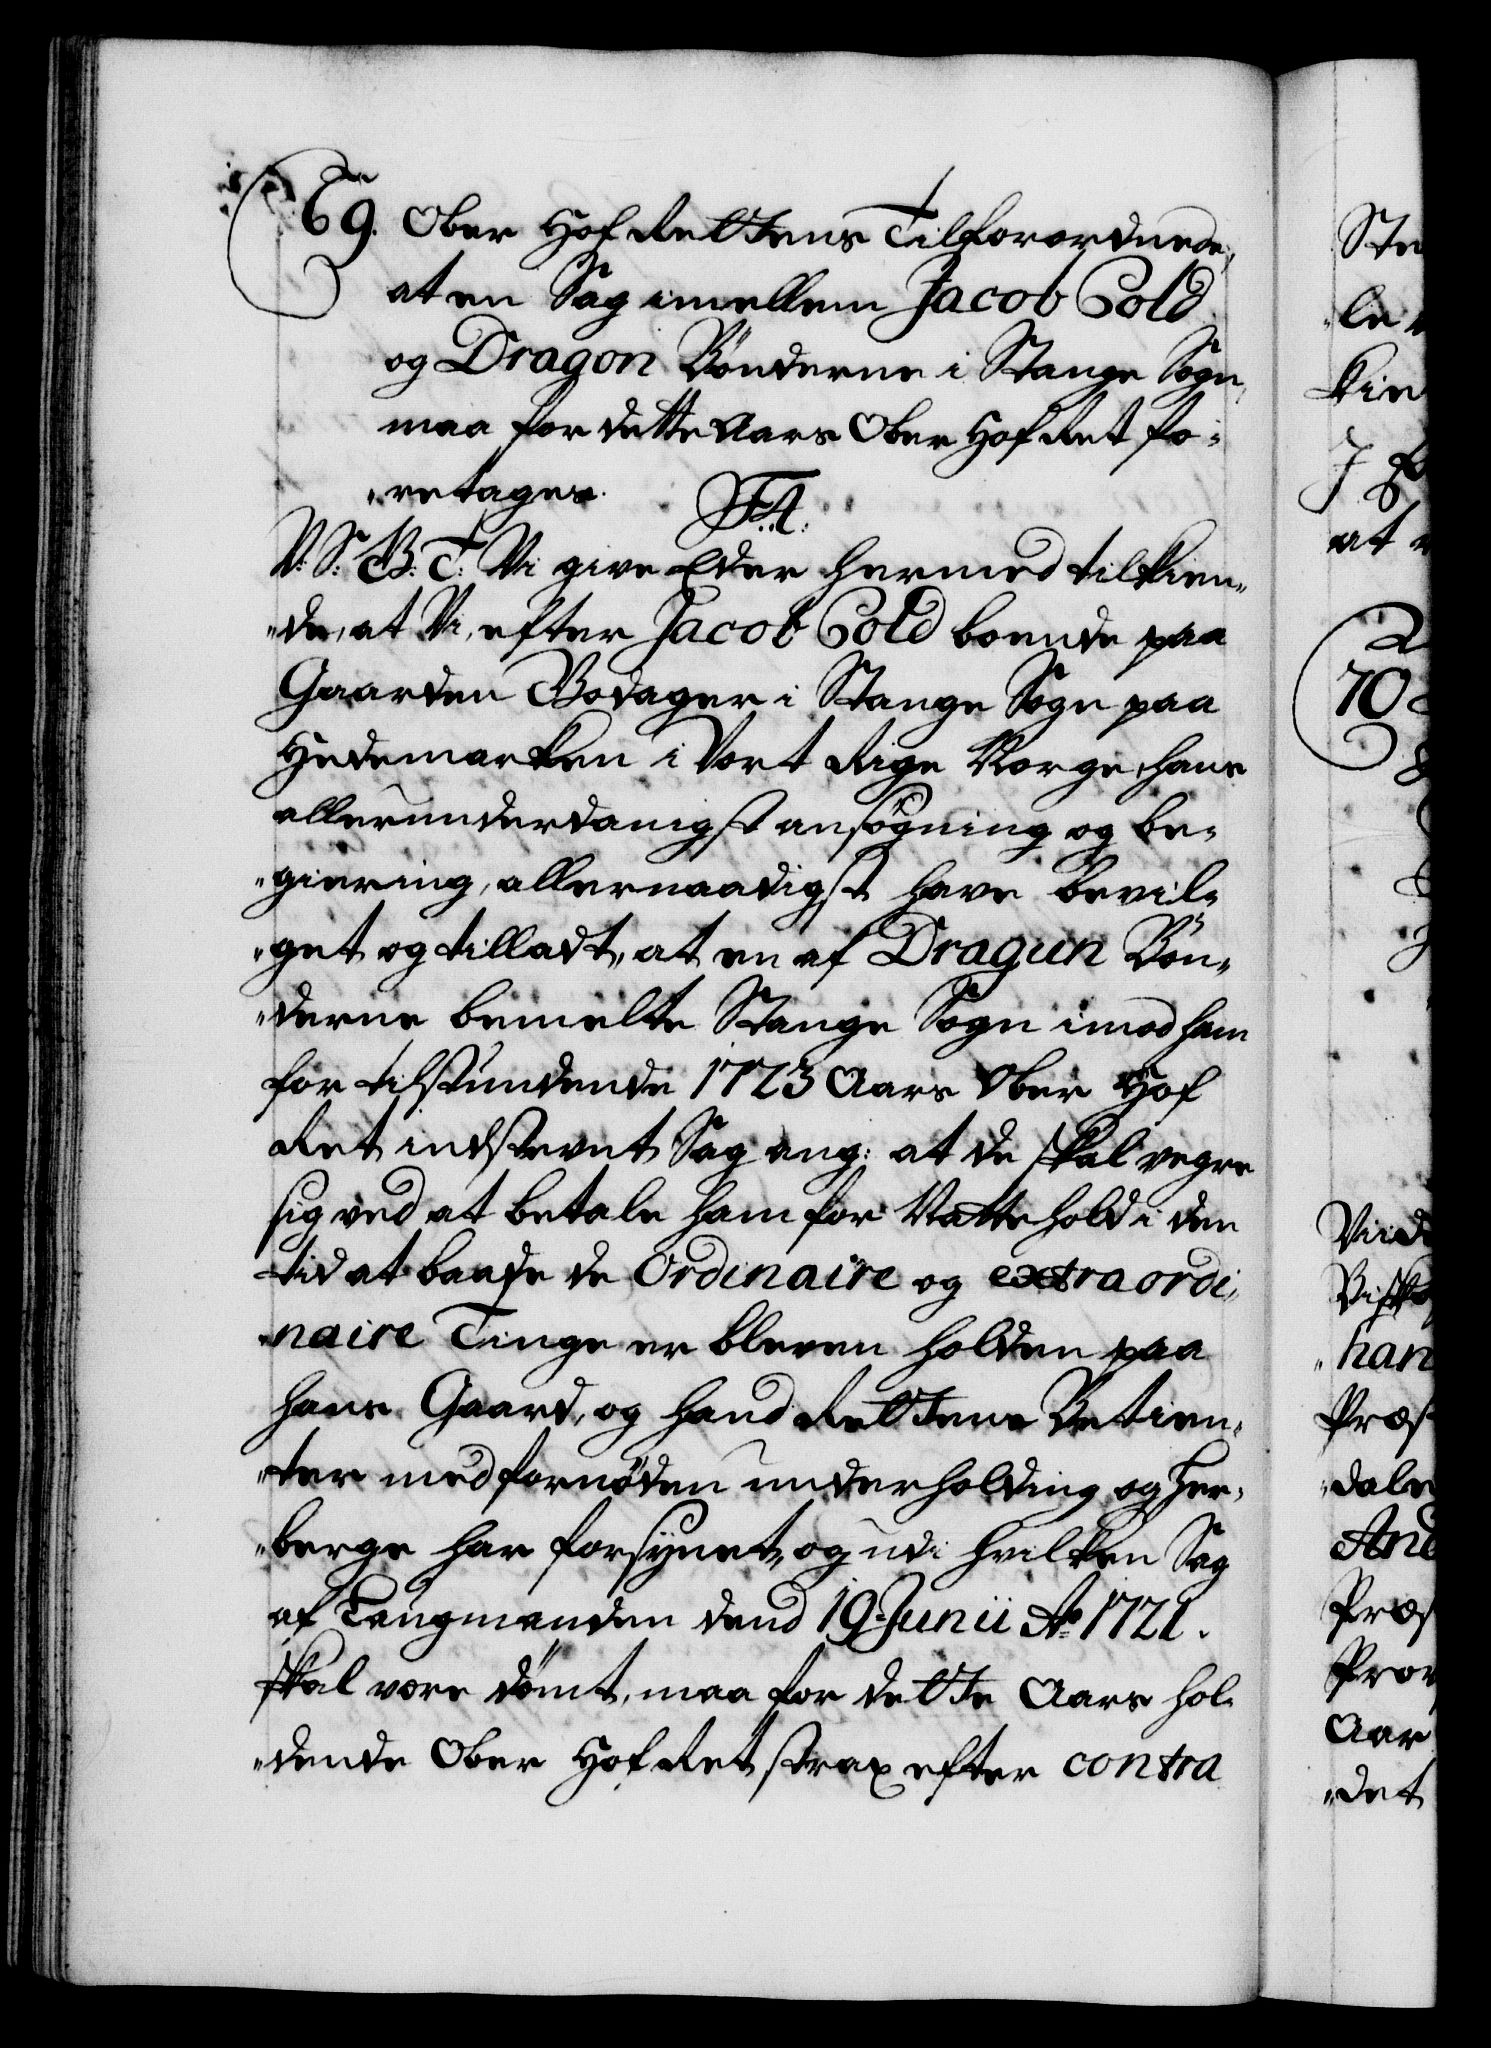 69. Ober Hof Rettens Tilforordnede,
at en Sag imellem Jacob Cold
og Dragon Bönderne i Stange Sogn,
maa for dette Aars Ober Hof Ret fo-
"retages.
F:4.
V: S: B: T: Vi give Eder hermed tilkien-
"de, at Vi, efter Jacob Cold boende paa
Gaarden Bodager i Stange Sogn paa
Hedemarken i Vort Rige Norge, hans
allerunderdanigst ansögning og be-
"giering, allernaadigst have bevil-
"get og tilladt, at en af Dragun Bön-
"derne bemelte Stange Sogn imod ham
for tilstundende 1723 Aars Ober Hof
Ret indstevnt Sag ang: at de skal vegre
sig ved at betale ham for Natte hold i den
tid at baade de Ordinaire og extraordi-
"naire Tinge er bleven holden paa
hans Gaard, og hand Rettens Betien-
"ter med fornöden underholding og Her-
"berge har forsÿnet, og udi hvilken Sag
af Laugmanden dend 19 Junii Ao 1721.
skal være dömt, maa for dette Aars hol-
"dende Ober Hof Ret strax efter contra
Ste
le
kien
at
70
Viid
Bisko
"han
Præs
"dale
And
Præs
Prov
Aar
"det